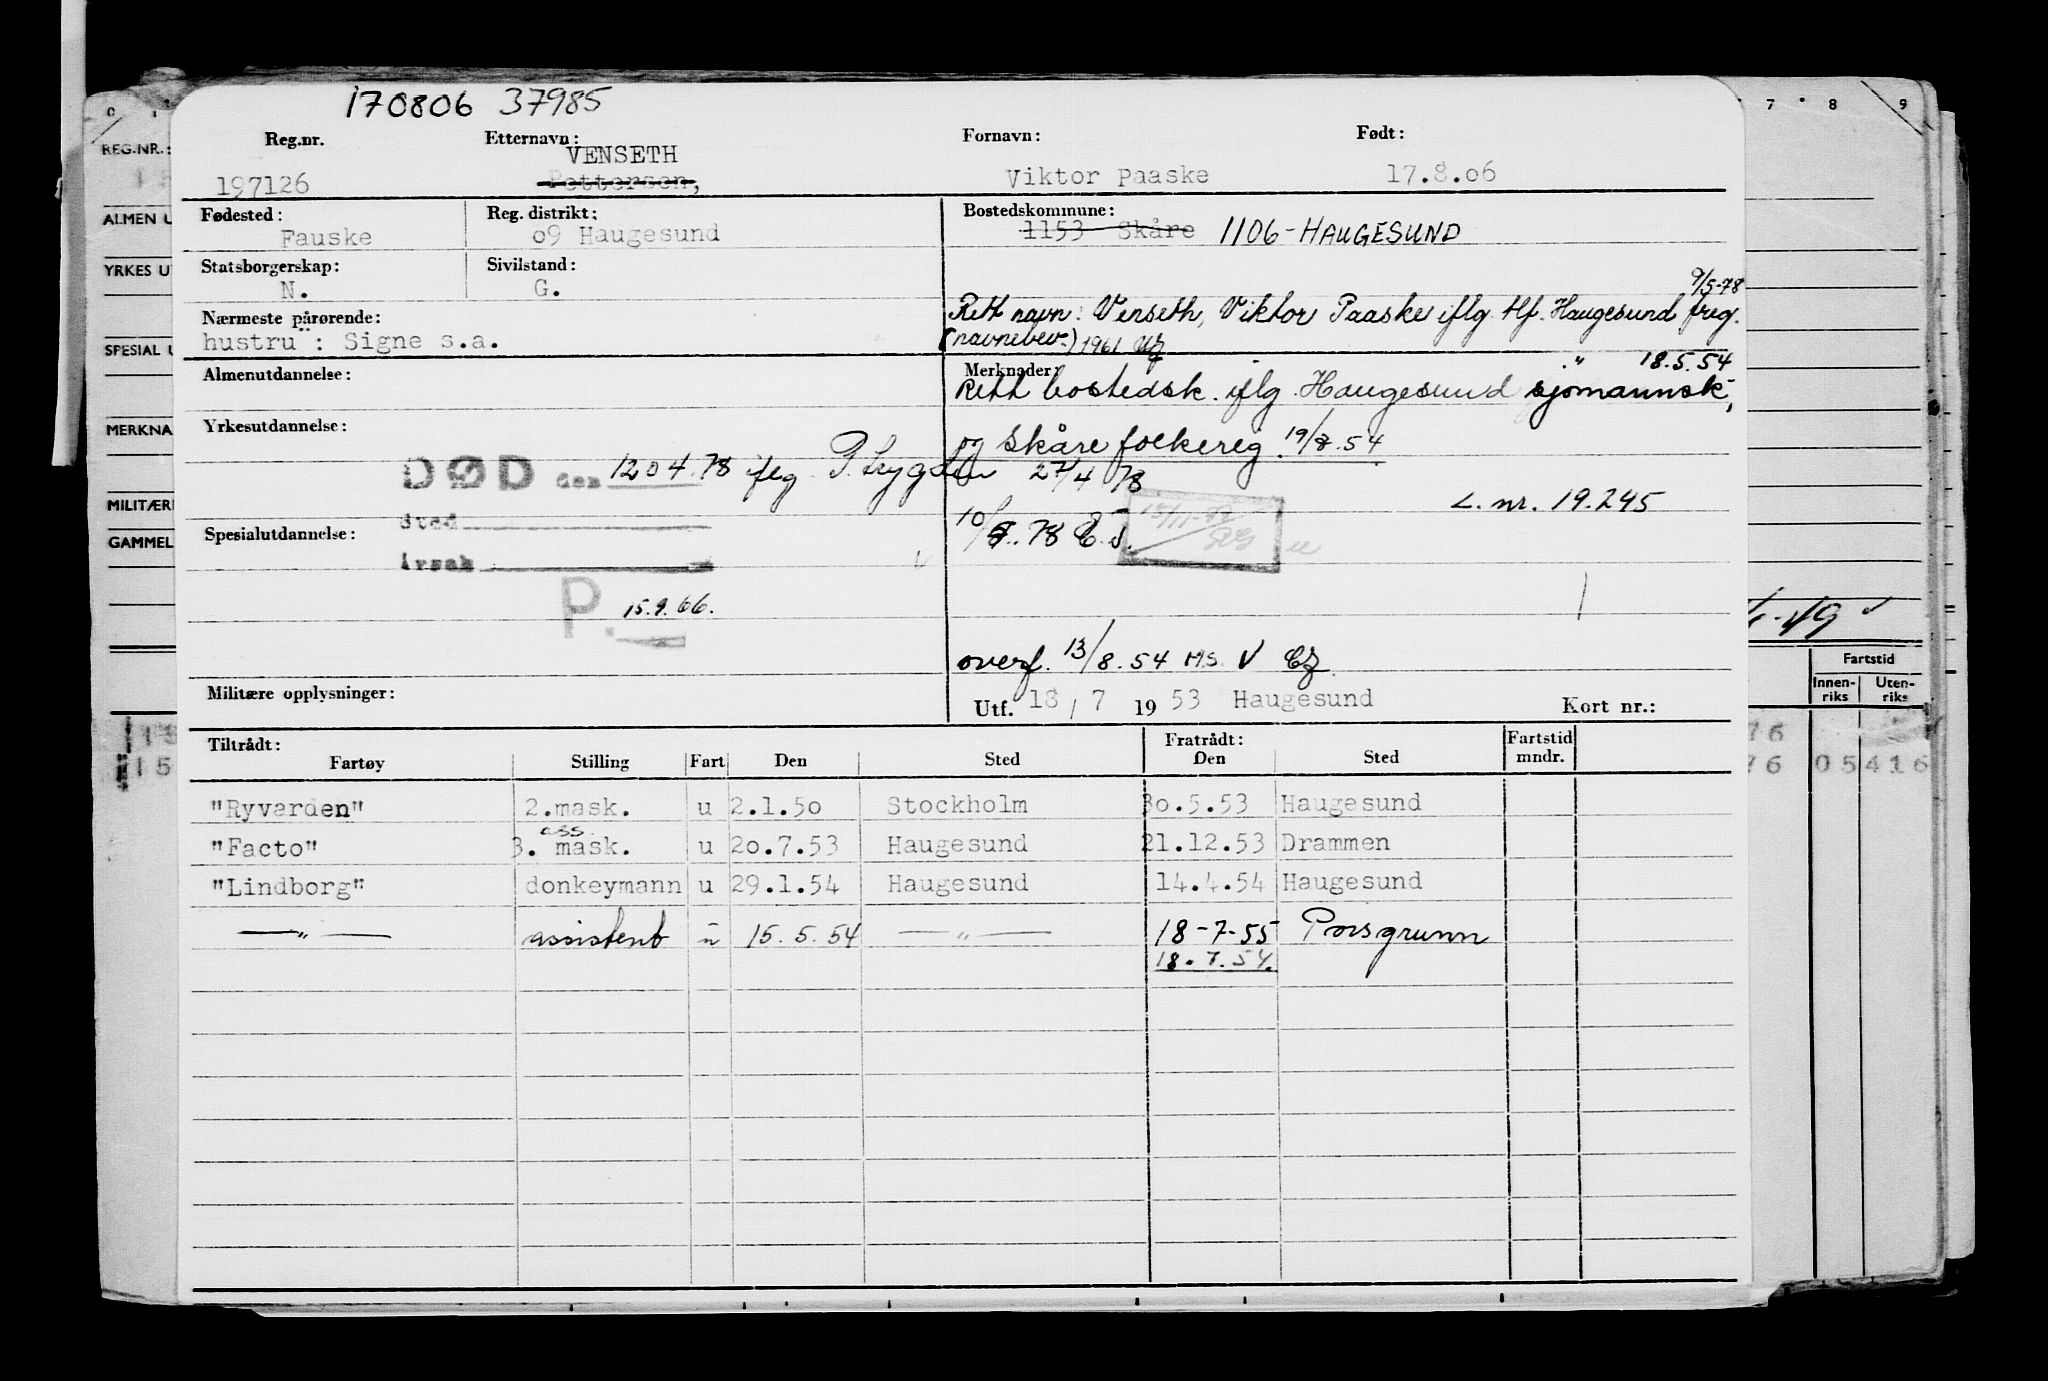 170806 37985
Reg.nr. Etternavn: Fornavn: Født:
VENSETH
197126 Pettersen, Viktor Paaske 17.8.o6
Fødested: Reg. distrikt: Bostedskommune:
Fauske o9 Haugesund 1153 Skåre 1106-HAUGESUND
Statsborgerskap: Sivilstand:
N. G.
9/5-78
Rett navn: Venseth, Viktor Paaske iflg. tlf. Haugesund freg.
Nærmeste pårørende:
hustru : Signe s.a.
(navnebev.) 1961
Almenutdannelse: Merknader: " 18.5.54
Rett bostedsk. iflg. Haugesund sjømannsk.,
Yrkesutdannelse:
og Skåre folkereg. 19/8.54
DØD den 12 04.78 iflg. P. trygden 27/4 78
L. nr. 19.245
sted
10/8.78
Spesialutdannelse:
årsak
P. 15.9.66.
overf. 13/8.54 M.S. V
Militære opplysninger:
Utf. 18 / 7 19 53 Haugesund Kort nr.:
Tiltrådt: Fratrådt: Fartstid
Fartøy Stilling Fart Den Sted Den Sted mndr.
"Ryvarden" 2.mask. u 2.1.5o Stockholm 3o.5.53 Haugesund
ass.
"Facto" 3. mask. u 2o.7.53 Haugesund 21.12.53 Drammen
"Lindborg" donkeymann u 29.1.54 Haugesund 14.4.54 Haugesund
— " — assistent u 15.5.54 — " — 18-7-55 Porsgrunn
18.7.54.
0 1 7 8 9
REG.NR.:
ALMEN U
YRKES U
SPESIAL U
MERKNA
MILITÆR
GAMMEL
Fartstid
Innen-riks Uten-riks
76
76 05 416
15